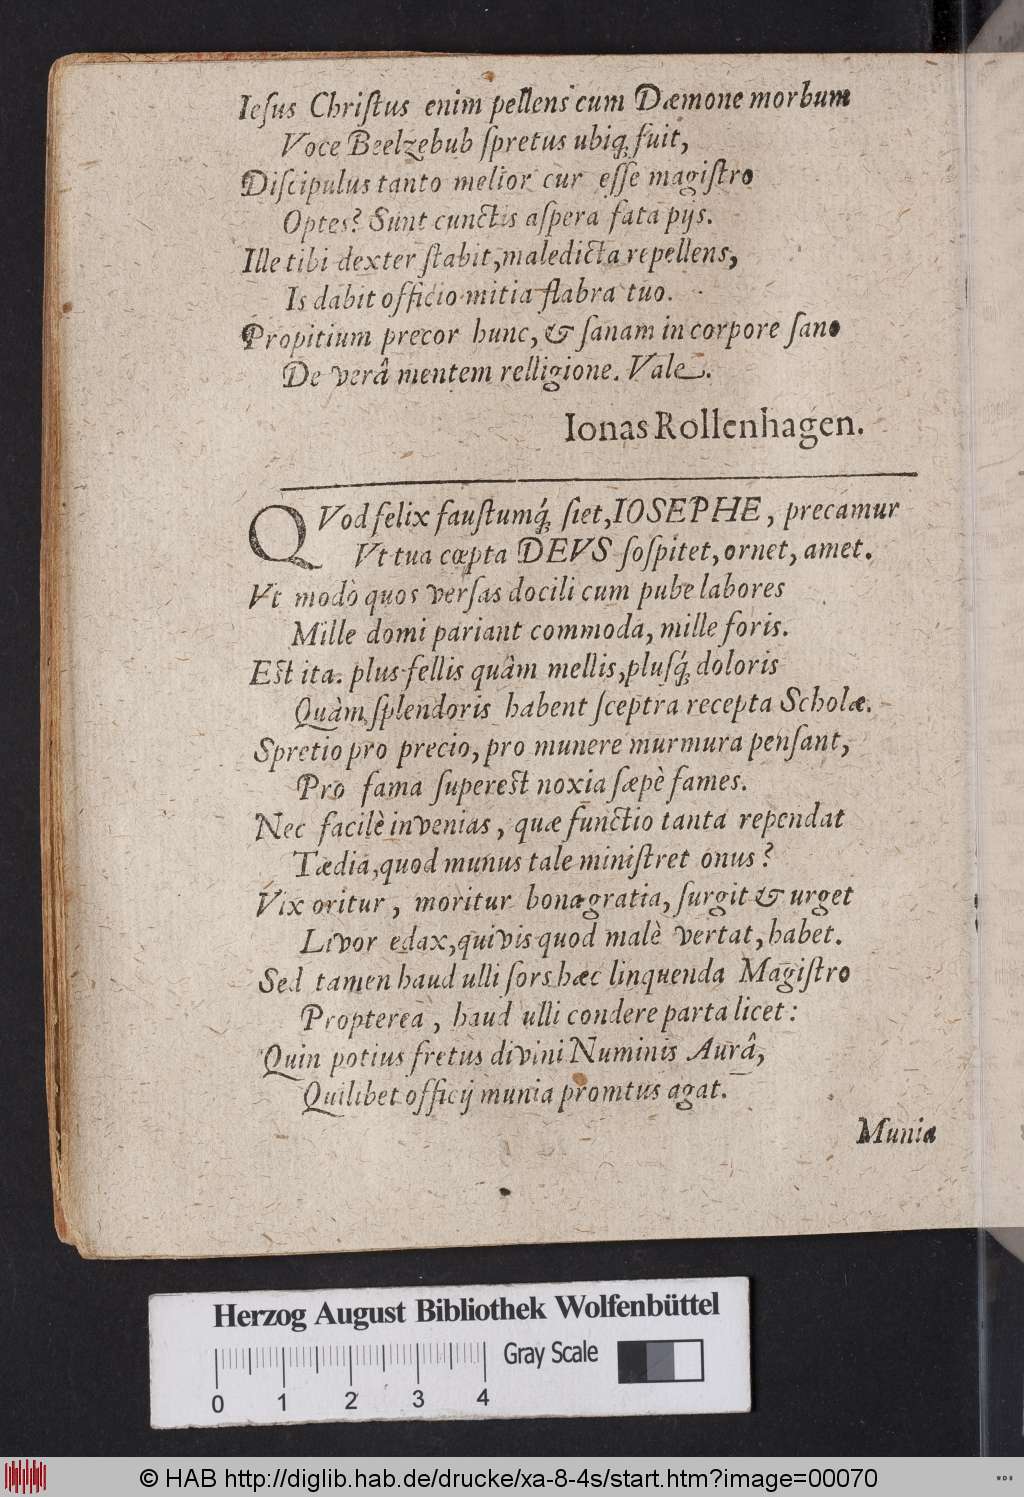 Ieſus Chriſtus enim pellens cum Dæmone morbum
Voce Beelzebub ſpretus ubiq; fuit,
Diſcipulus tanto melior cur eſſe magiſtro
Optes? Sunt cunctis aſpera fata pijs.
Ille tibi dexter ſtabit, maledicta repellens,
Is dabit officio mitia flabra tuo.
Propitium precor hunc, & ſanam in corpore ſano
De verâ mentem relligione. Vale.
Ionas Rollenhagen.
QVod felix fauſtumq́; ſiet, IOSEPHE, precamur
Vt tua cœpta DEVS ſoſpitet, ornet, amet.
Vt modò quos verſas docili cum pube labores
Mille domi pariant commoda, mille foris.
Eſt ita. plus fellis quâm mellis, pluſq́; doloris
Quàm ſplendoris habent ſceptra recepta Scholæ.
Spretio pro precio, pro munere murmura penſant,
Pro fama ſupereſt noxia ſæpè fames.
Nec facilè invenias, quæ functio tanta rependat
Tædia, quod munus tale miniſtret onus?
Vix oritur, moritur bona gratia, ſurgit & urget
Livor edax, quivis quod malè vertat, habet.
Sed tamen haud ulli ſors hæc linquenda Magiſtro
Propterea, haud ulli condere parta licet:
Quin potius fretus divini Numinis Aurâ,
Quilibet officij munia promtus agat.
Munia
Herzog August Bibliothek Wolfenbüttel
Gray Scale
0 1 2 3 4
© HAB http://diglib.hab.de/drucke/xa-8-4s/start.htm?image=00070